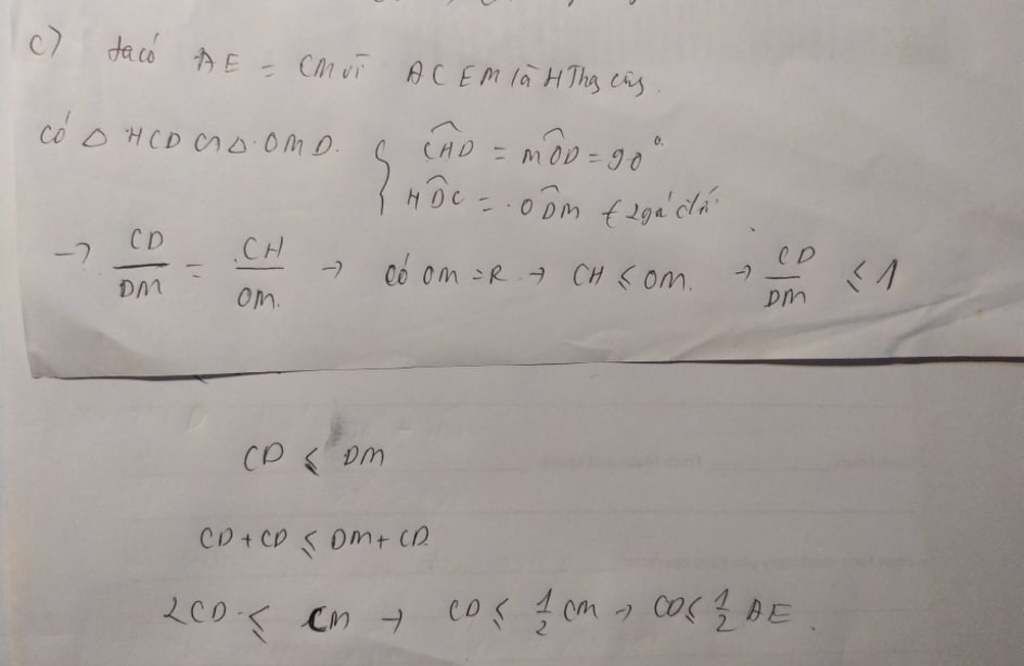 c) ta có AE = CM vì ACEM là HThg cân.
có △ HCD ∽ △ OMD. { \widehat{CHD} = \widehat{MOD} = 90°
\widehat{HDC} = \widehat{ODM}
→ \frac{CD}{DM} = \frac{CH}{OM} → có OM = R → CH ≤ OM. → \frac{CD}{DM} ≤ 1
CD ≤ DM
CD + CD ≤ DM + CD
2CD ≤ CM → CD ≤ \frac{1}{2} CM → CD ≤ \frac{1}{2} AE.